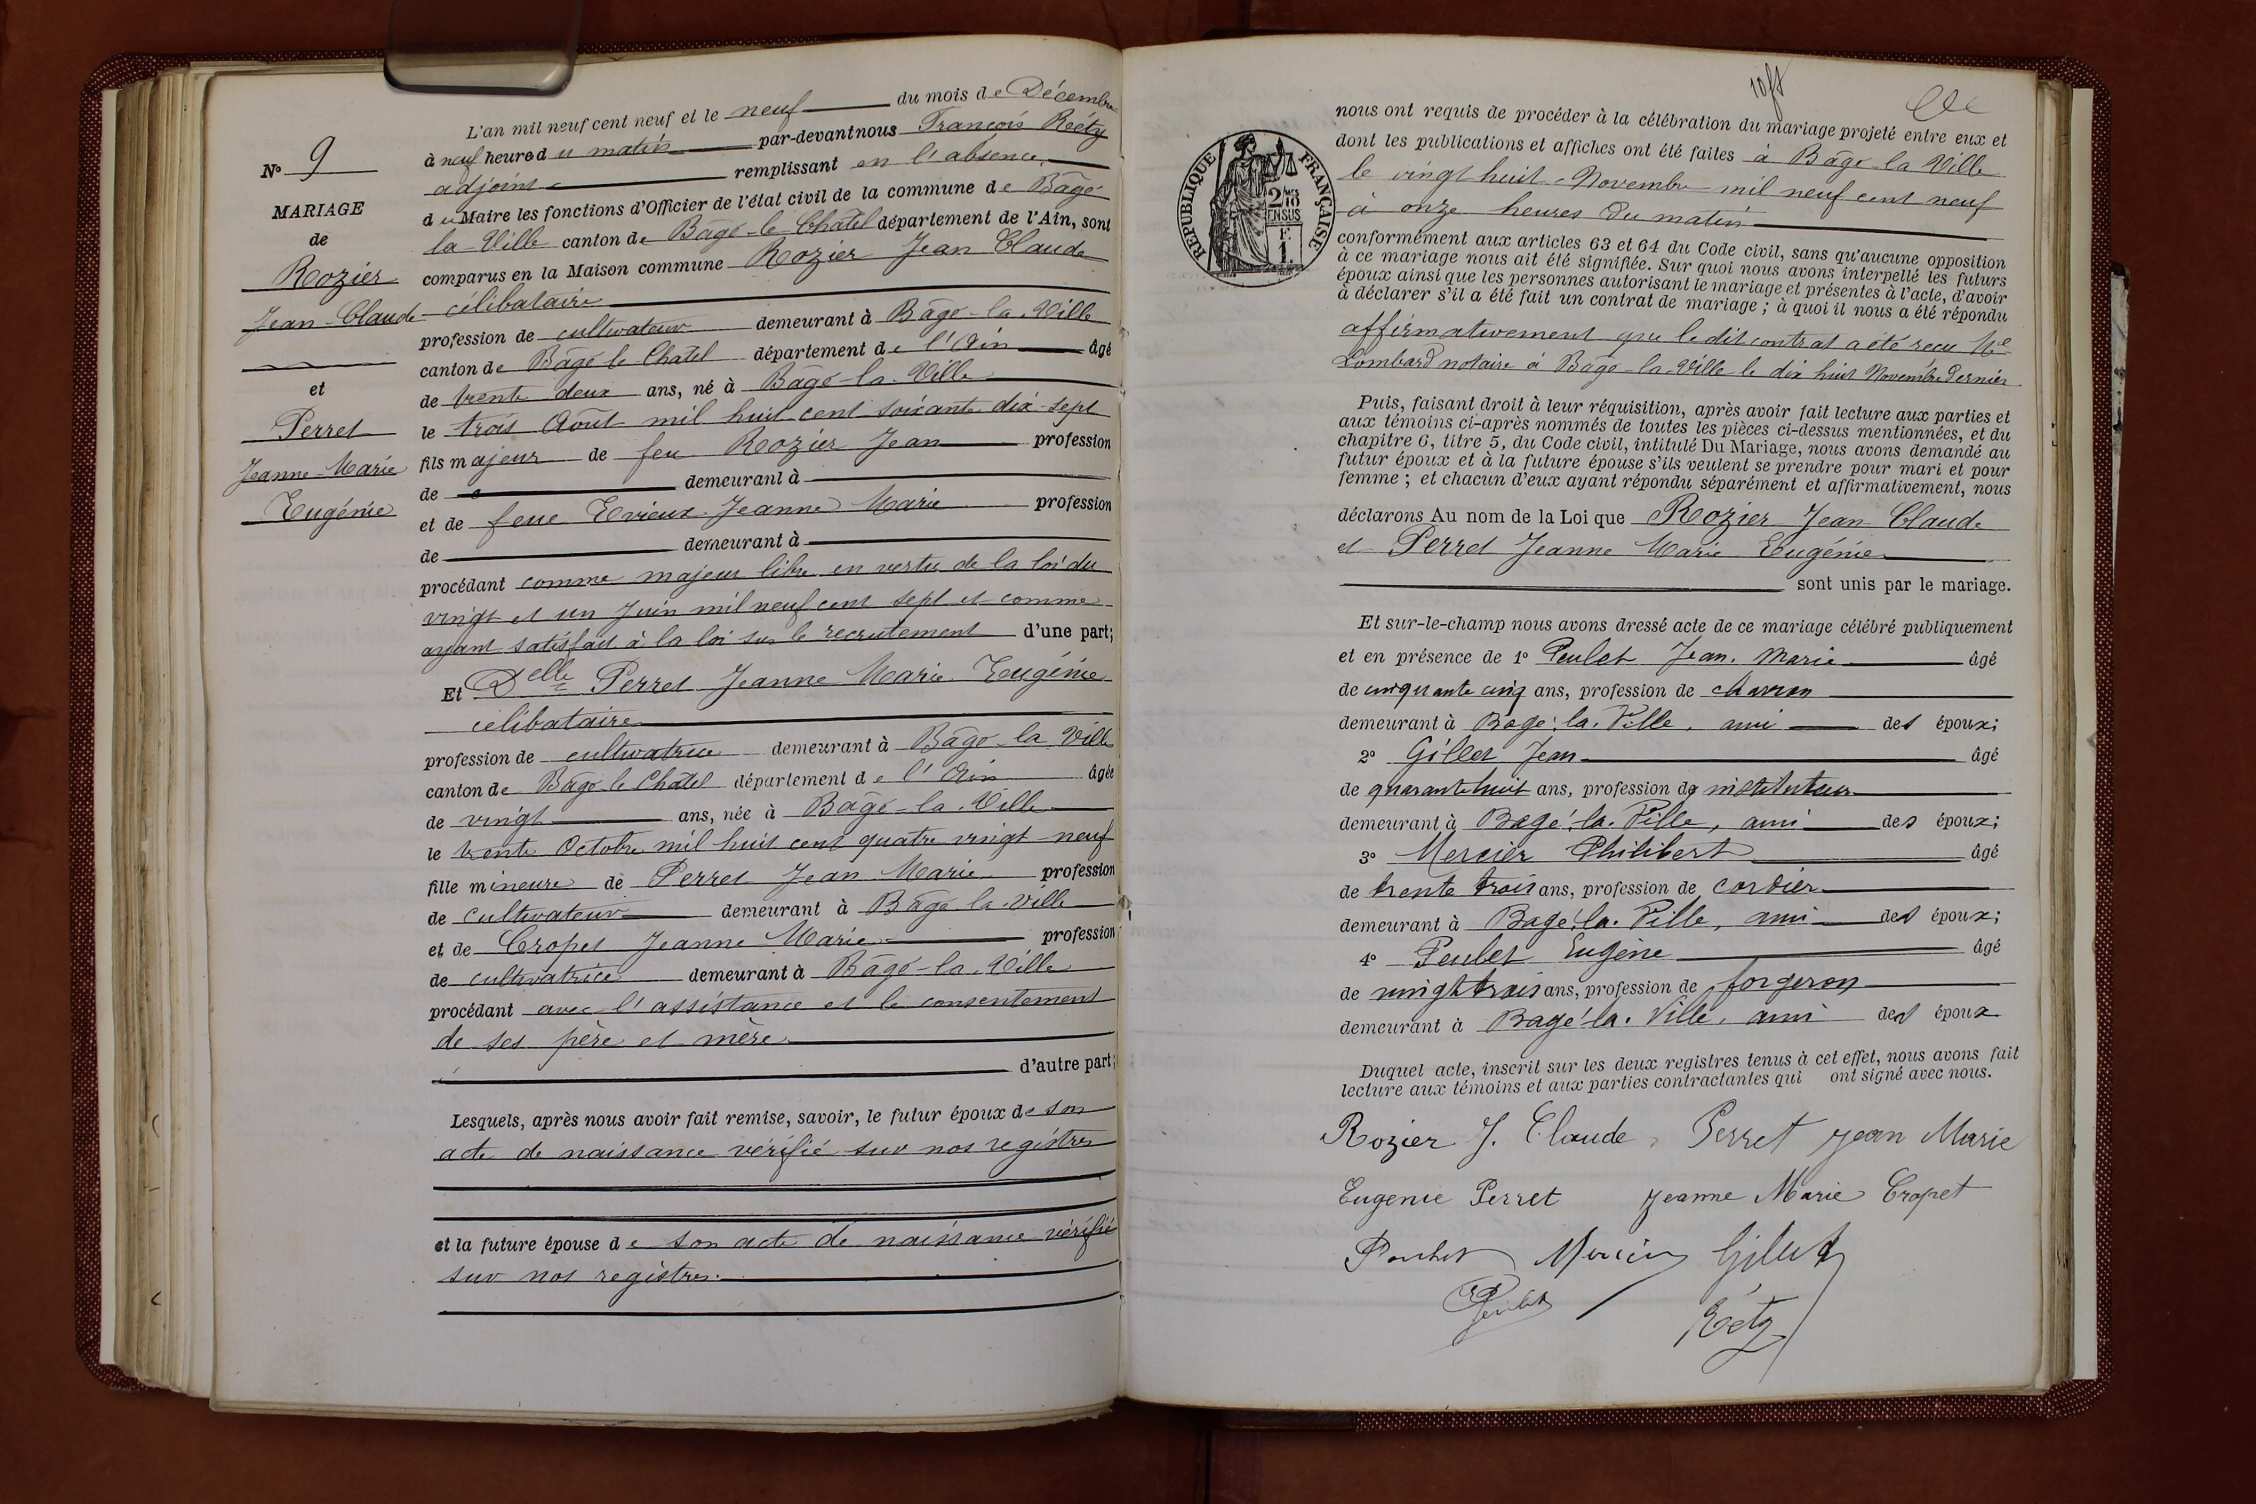 N° 9
MARIAGE
de
Rozier
Jean-Claude
et
Perret
Jeanne-Marie
Eugénie
L'an mil neuf cent neuf et le neuf du mois de Décembre
à neuf heures du matin par-devant nous François Réty
adjoint remplissant en l'absence
du Maire les fonctions d'Officier de l'état civil de la commune de Bâgé
la Ville canton de Bâgé-le-Châtel département de l'Ain, sont
comparus en la Maison commune Rozier Jean Claude
célibataire
profession de cultivateur demeurant à Bâgé-la-Ville
canton de Bâgé le Châtel département de l'Ain âgé
de trente deux ans, né à Bâgé-la-Ville
le trois Août mil huit cent soixante dix-sept
fils majeur de feu Rozier Jean profession
de demeurant à
et de feue Evieux Jeanne Marie profession
de demeurant à
procédant comme majeur libre en vertu de la loi du
vingt et un Juin mil neuf cent sept et comme
ayant satisfait à la loi sur le recrutement d'une part;
Et Delle Perret Jeanne Marie Eugénie
célibataire
profession de cultivatrice demeurant à Bâgé la Ville
canton de Bâgé-le-Châtel département de l'Ain âgée
de vingt ans, née à Bâgé-la-Ville
le trente Octobre mil huit cent quatre vingt-neuf
fille mineure de Perret Jean Marie profession
de cultivateur demeurant à Bâgé la Ville
et de Cropet Jeanne Marie profession
de cultivatrice demeurant à Bâgé-la-Ville
procédant avec l'assistance et le consentement
de ses père et mère
d'autre part;
Lesquels, après nous avoir fait remise, savoir, le futur époux de son
acte de naissance vérifié sur nos registres
et la future épouse de son acte de naissance vérifié
sur nos registres.
RÉPUBLIQUE FRANÇAISE
2/10
EN SUS
F.
1.
nous ont requis de procéder à la célébration du mariage projeté entre eux et
dont les publications et affiches ont été faites à Bâgé-la-Ville
le vingt huit Novembre mil neuf cent neuf
à onze heures du matin
conformément aux articles 63 et 64 du Code civil, sans qu'aucune opposition
à ce mariage nous ait été signifiée. Sur quoi nous avons interpellé les futurs
époux ainsi que les personnes autorisant le mariage et présentes à l'acte, d'avoir
à déclarer s'il a été fait un contrat de mariage; à quoi il nous a été répondu
affirmativement que le dit contrat a été reçu Me
Lombard notaire à Bâgé-la-Ville le dix huit Novembre dernier
Puis, faisant droit à leur réquisition, après avoir fait lecture aux parties et
aux témoins ci-après nommés de toutes les pièces ci-dessus mentionnées, et du
chapitre 6, titre 5, du Code civil, intitulé Du Mariage, nous avons demandé au
futur époux et à la future épouse s'ils veulent se prendre pour mari et pour
femme; et chacun d'eux ayant répondu séparément et affirmativement, nous
déclarons Au nom de la Loi que Rozier Jean Claude
et Perret Jeanne Marie Eugénie
sont unis par le mariage.
Et sur-le-champ nous avons dressé acte de ce mariage célébré publiquement
et en présence de 1° Peulet Jean-Marie âgé
de cinquante cinq ans, profession de charron
demeurant à Bâgé-la-Ville, ami des époux;
2° Gillet Jean âgé
de quarante huit ans, profession de instituteur
demeurant à Bagé-la-Ville, ami des époux;
3° Mercier Philibert âgé
de trente trois ans, profession de cordier
demeurant à Bagé-la-Ville, ami des époux;
4° Peulet Eugène âgé
de vingt trois ans, profession de forgeron
demeurant à Bagé-la-Ville, ami des époux
Duquel acte, inscrit sur les deux registres tenus à cet effet, nous avons fait
lecture aux témoins et aux parties contractantes qui ont signé avec nous.
Rozier J. Claude, Perret Jean Marie
Eugenie Perret Jeanne Marie Cropet
Peulet Mercier Gillet
Peulet
Réty